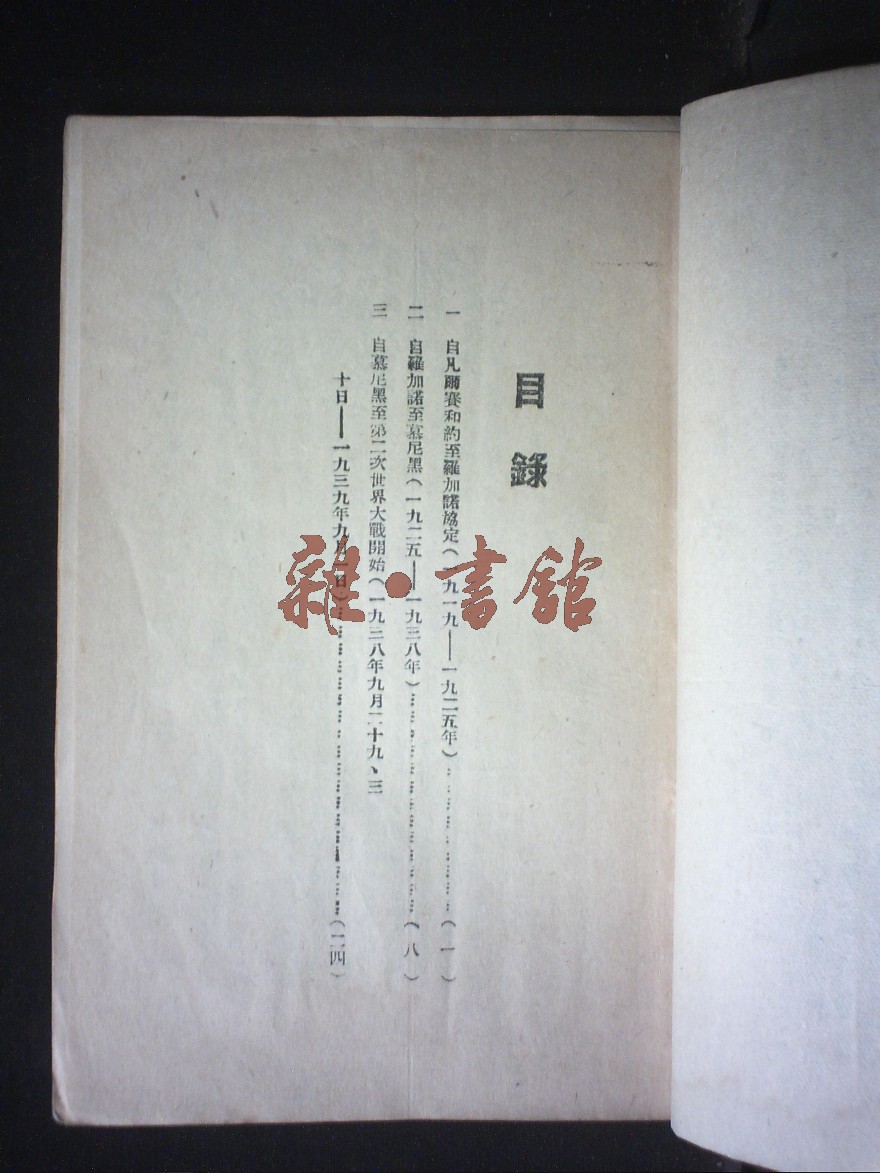 目錄
一　自凡爾賽和約至羅加諾協定(一九一九——一九二五年)………(一)
二　自羅加諾至慕尼黑(一九二五——一九三八年)………(八)
三　自慕尼黑至第二次世界大戰開始(一九三八年九月二十九、三
十日——一九三九年九月一日)………(二四)
雜·書館